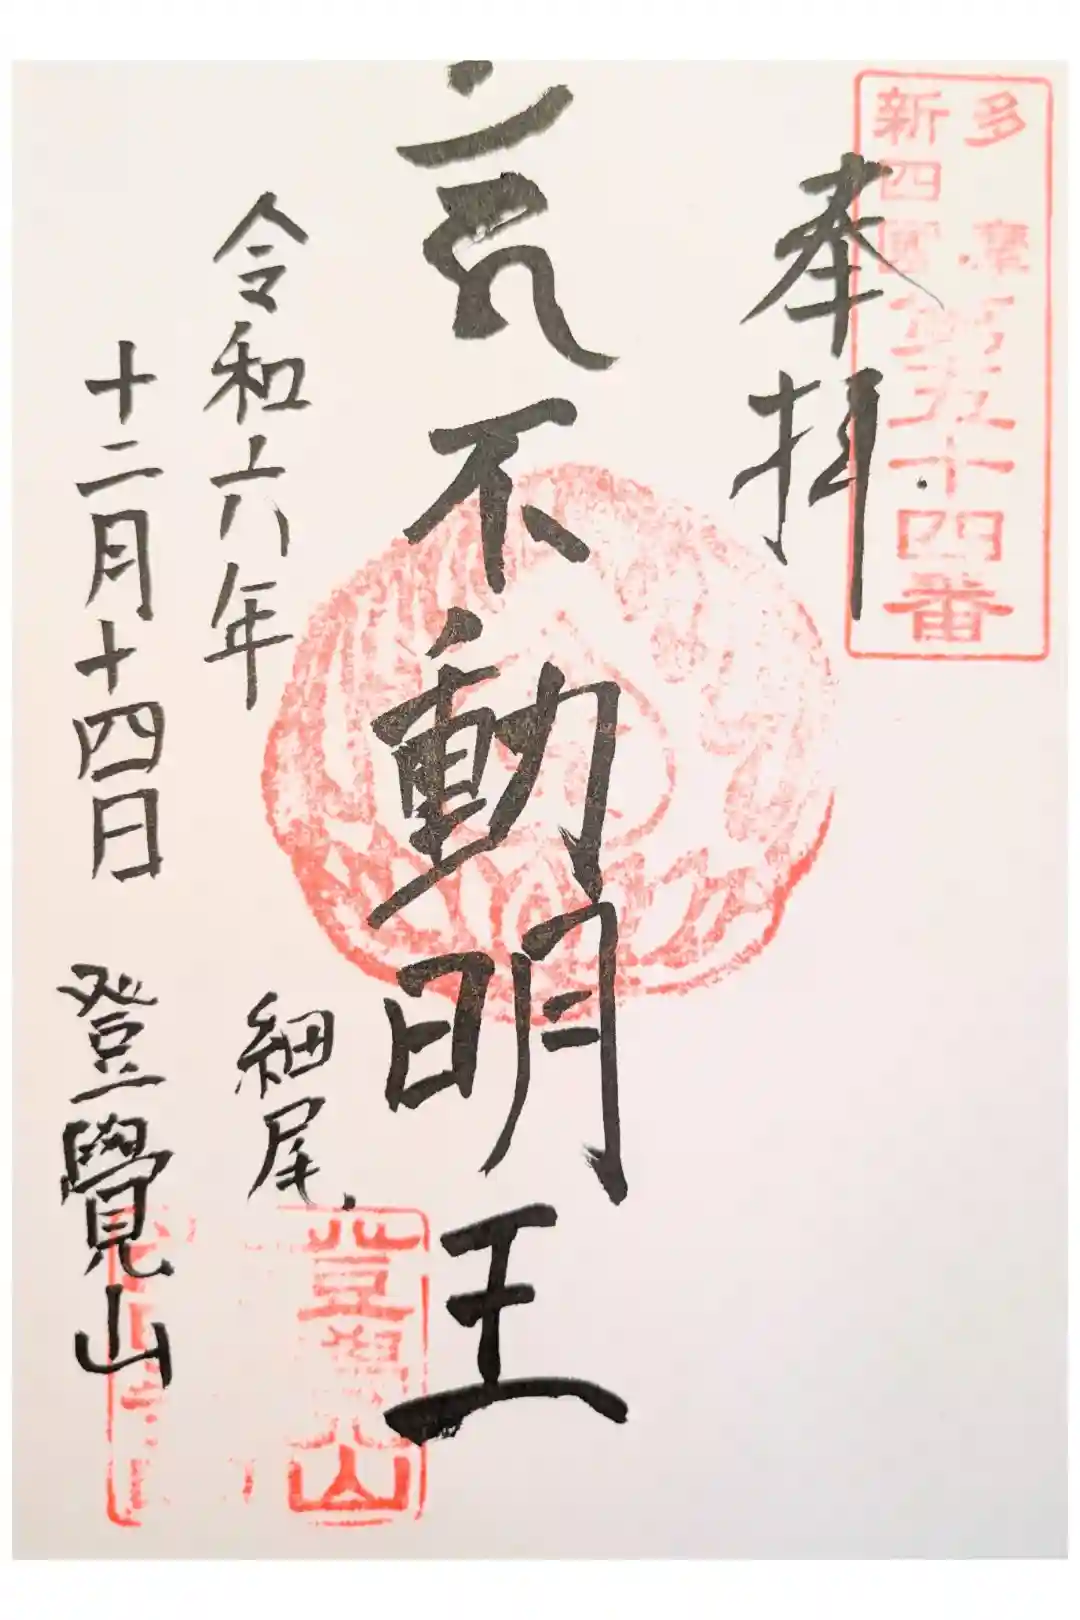 多摩
新四國
第五十四番
奉拝
不動明王
令和六年
十二月十四日
細尾
登覺山
登覺山